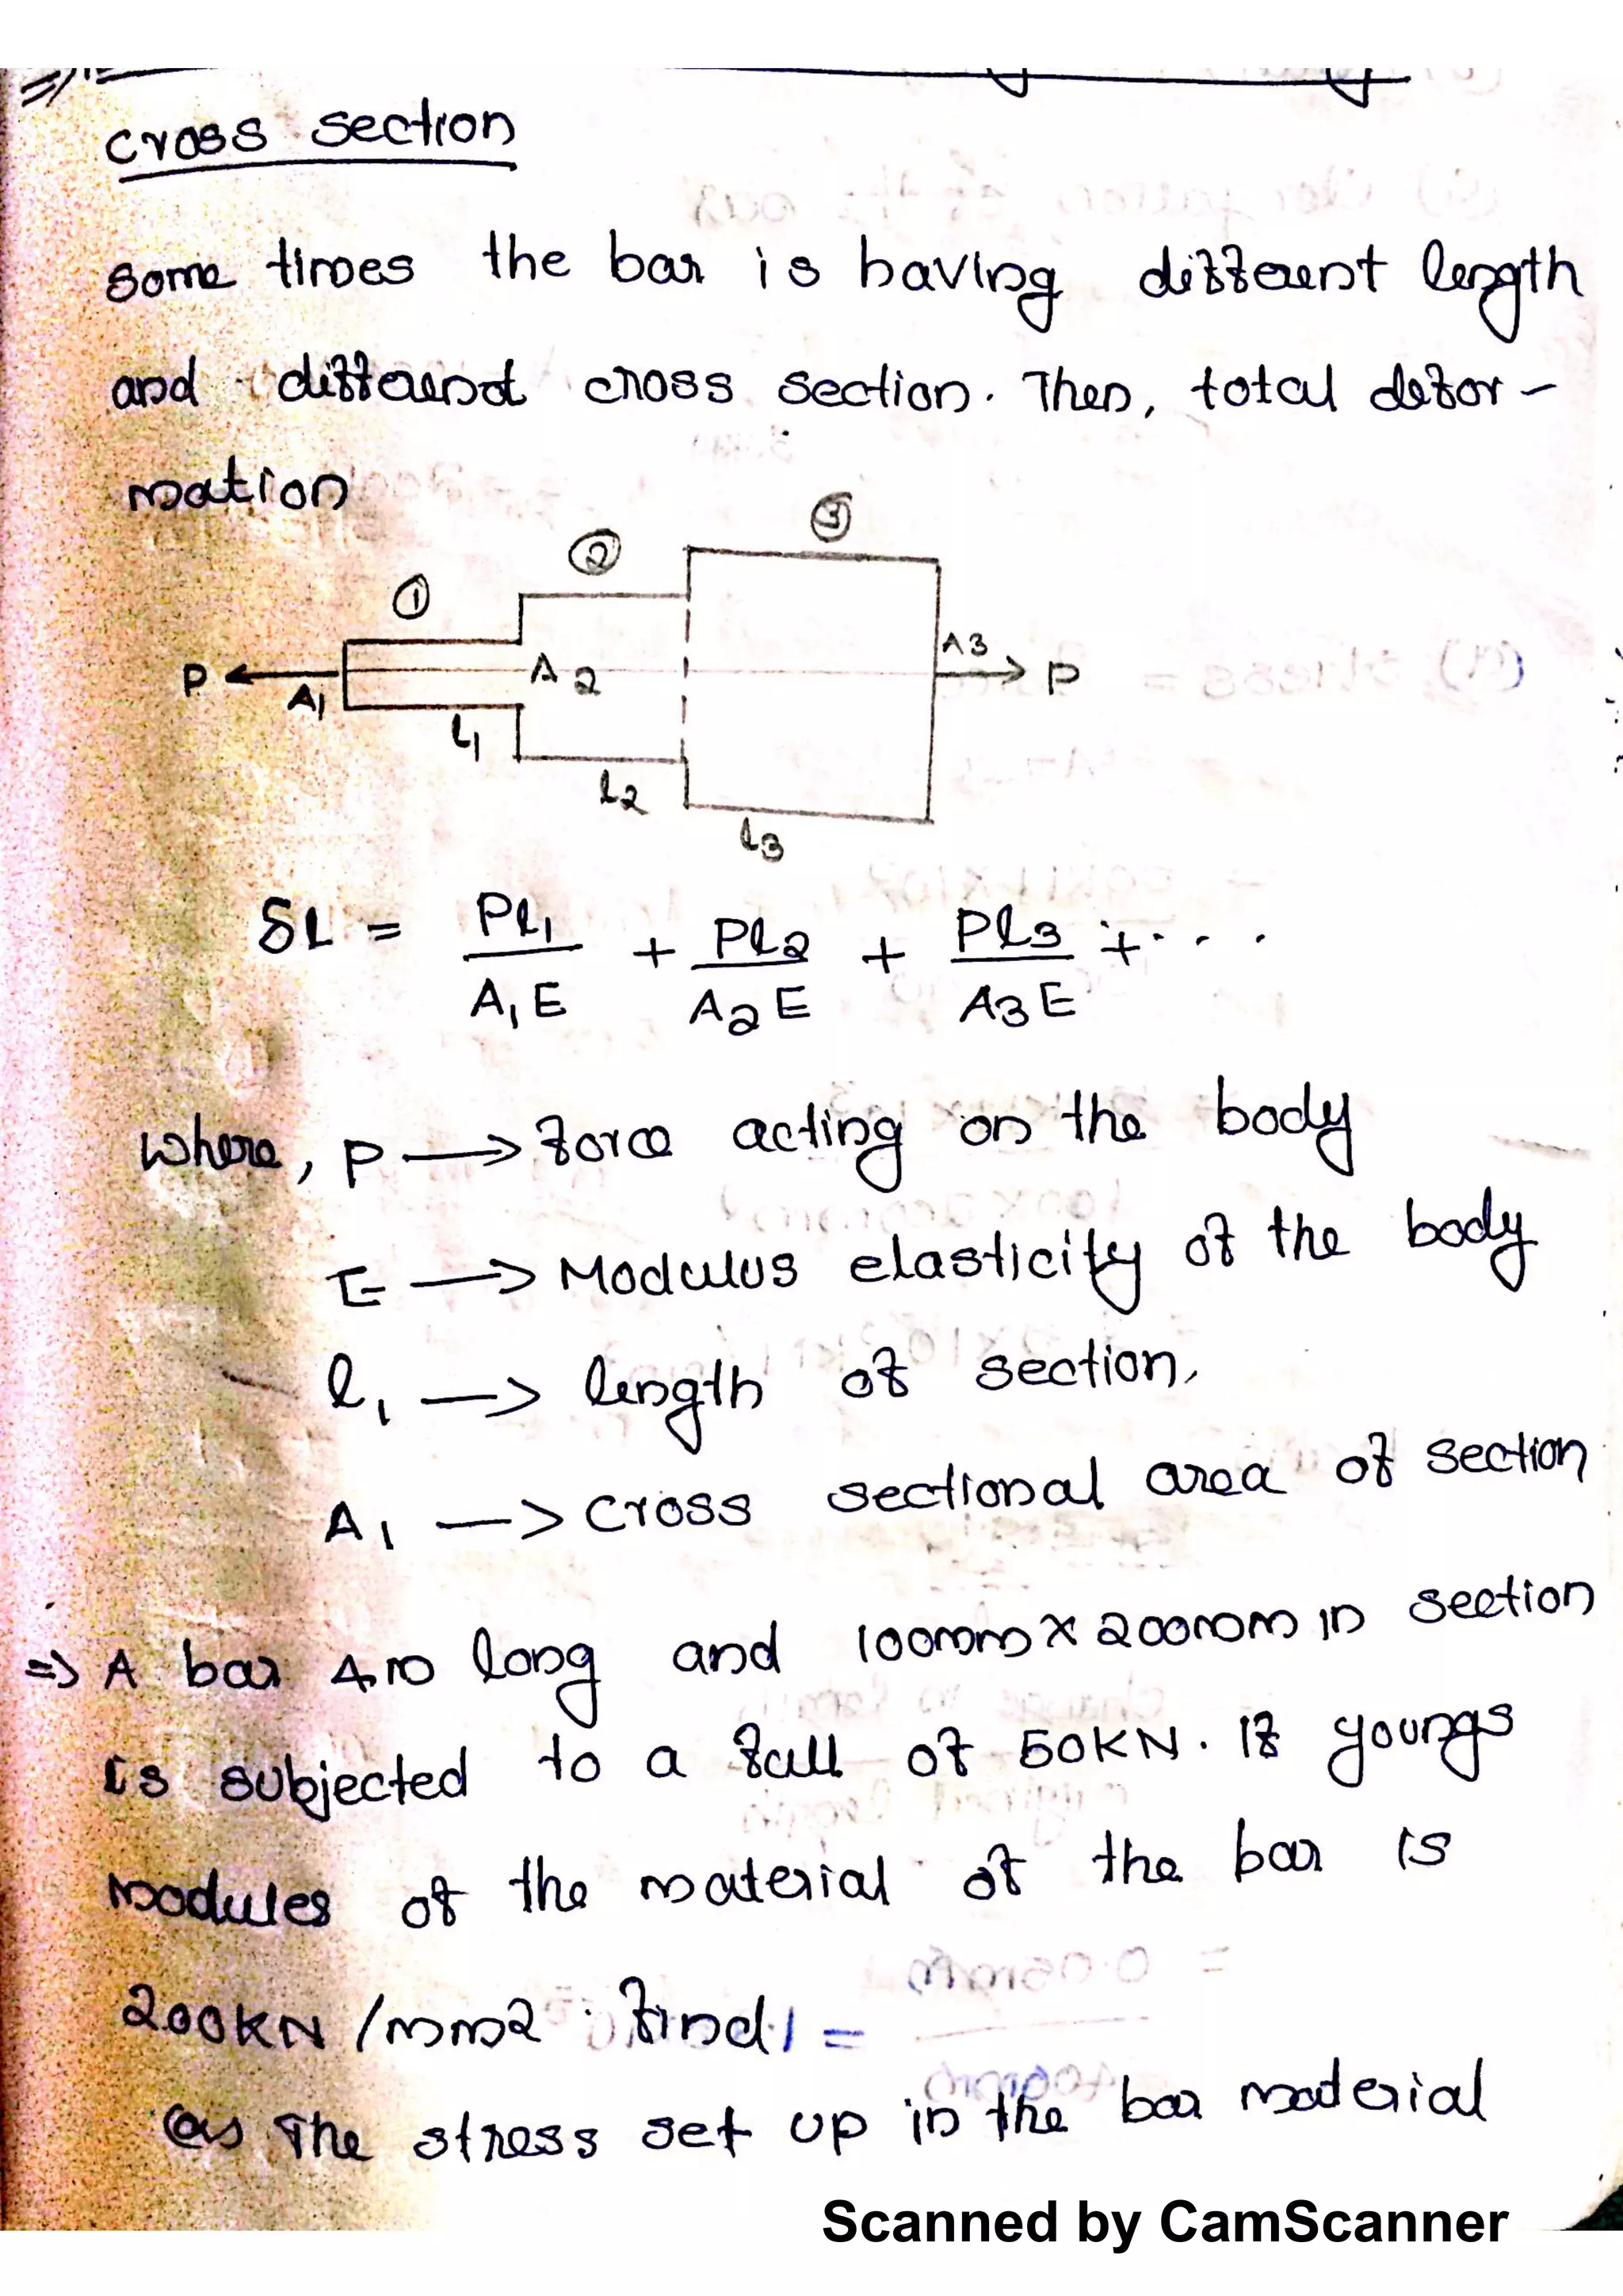 cross section
some times the bar is having different length
and different cross section. Then, total defor-
mation
① ② ③
P A1 A2 A3 P
L1
l2
l3
δL = Pl1/A1E + Pl2/A2E + Pl3/A3E + . . .
where, P → force acting on the body
E → Modulus elasticity of the body
l1 → length of section,
A1 → cross sectional area of section
⇒ A bar 4m long and 100mm x 200mm in section
is subjected to a fall of 50KN. If youngs
modules of the material of the bar is
200KN/mm2. find
The stress set up in the bar material
Scanned by CamScanner